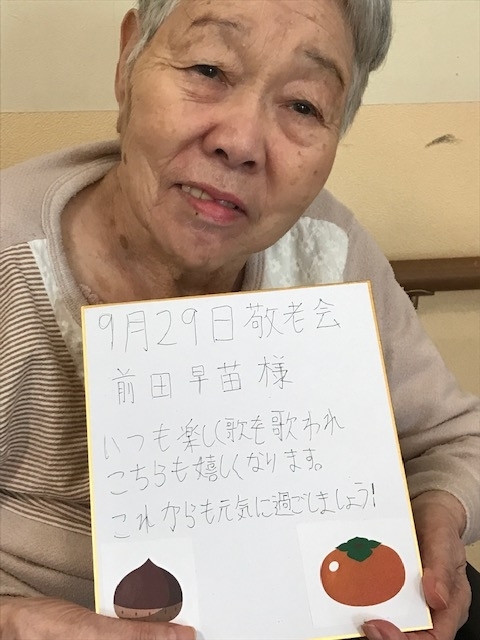 9月29日敬老会
前田早苗様
いつも楽しく歌を歌われ
こちらも嬉しくなります。
これからも元気に過ごしましょう!